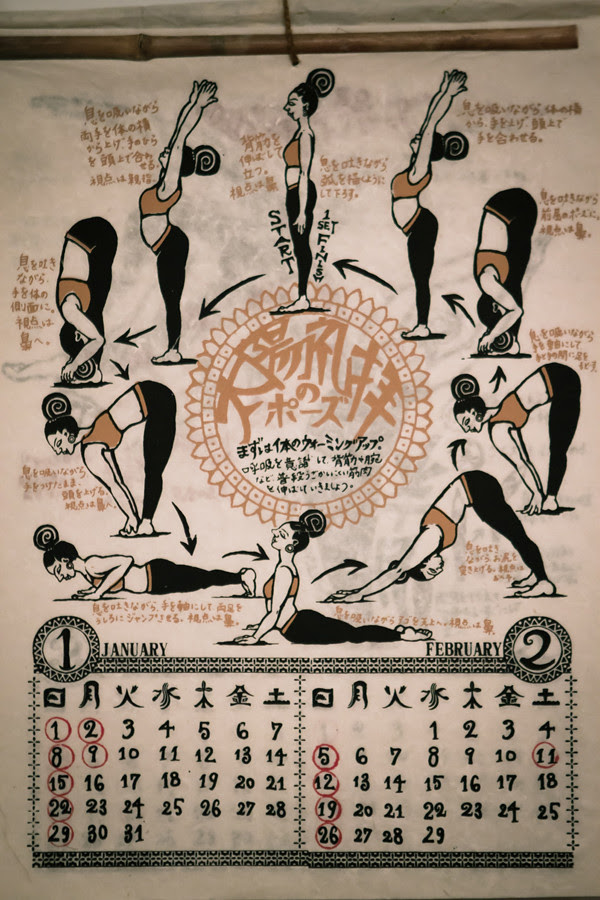 息を吸いながら
両手を体の横
から上げ、手のひら
を頭上で合わせる。
視点は親指。
背筋を
伸ばして
立つ。
視点は鼻。
START
1 SET FINISH
息を吐きながら
弧を描くように
して下ろす。
息を吸いながら、体の横
から、手を上げ、頭上で
手を合わせる。
息を吐きながら
前屈のポーズに。
視点は鼻。
息を吐き
ながら、
手を体の
側面に。
視点は
鼻へ。
息を吸いながら
手を軸にして
太陽礼拝
の
ポーズ
まずは体のウォーミングアップ
呼吸を意識して、背筋や腕
など、普段うごかいにくい筋肉
を伸ばしていきましょう。
息を吸いながら
手をつけたまま、
頭を上げる。
視点は鼻へ。
息を吐き
ながら、お尻を
突き上げる。視点は
おへそ。
息を吐きながら、手を軸にして両足を
うしろにジャンプさせる。視点は鼻。
息を吸いながらアゴを天上へ。視点は鼻。
1 JANUARY
FEBRUARY 2
日 月 火 水 木 金 土
1 2 3 4 5 6 7
8 9 10 11 12 13 14
15 16 17 18 19 20 21
22 23 24 25 26 27 28
29 30 31
日 月 火 水 木 金 土
1 2 3 4
5 6 7 8 9 10 11
12 13 14 15 16 17 18
19 20 21 22 23 24 25
26 27 28 29